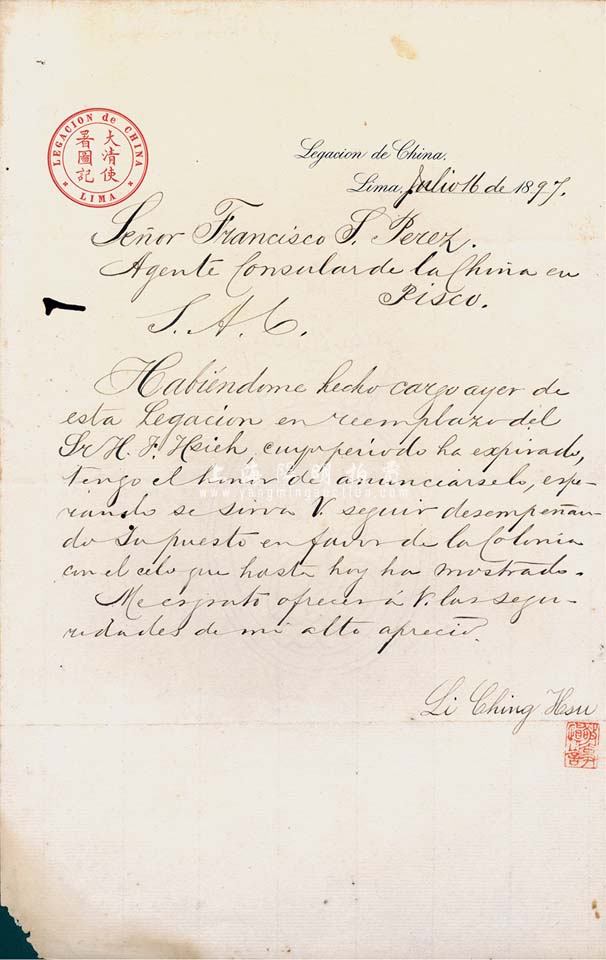 LEGACION de CHINA
大清使
署圖記
LIMA
Legacion de China.
Lima, Julio 16 de 1897.
Señor Francisco S. Perez.
Agente Consular de la China en
Pisco.
S. A. C.
Habiéndome hecho cargo ayer de
esta Legacion en reemplazo del
Sr H. F. Hsieh, cuyo período ha expirado,
tengo el honor de anunciarselo, espe-
rando se sirva V. seguir desempeñan-
do su puesto en favor de la Colonia
con el celo que hasta hoy ha mostrado.
Me es grato ofrecer á V. las segu-
ridades de mi alto aprecio.
Li Ching Hsu
上海陽明拍賣
www.yangmingauction.com